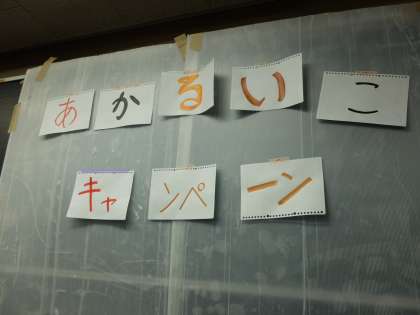 あかるいこ
キャンペーン